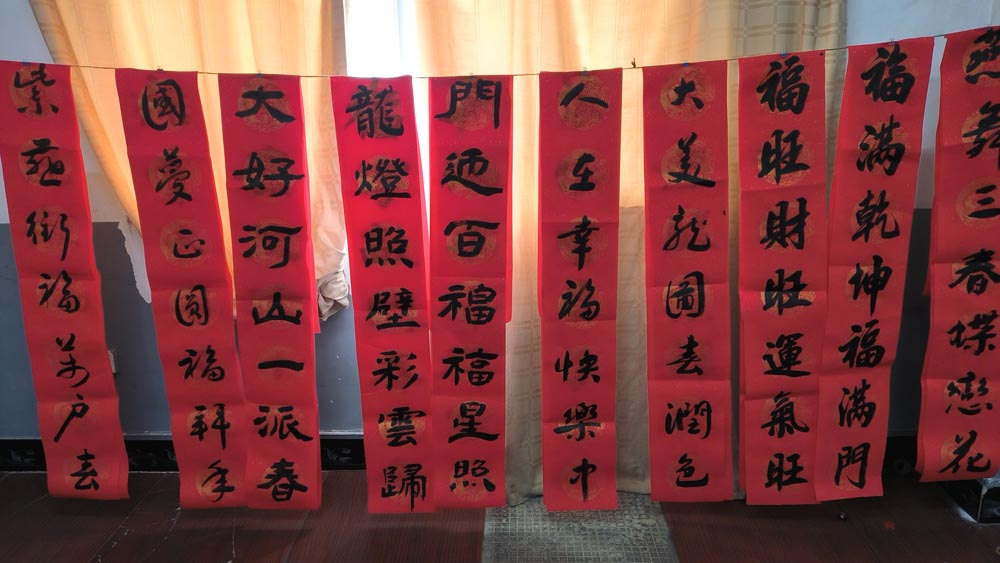 燕舞三春蝶戀花
福滿乾坤福滿門
福旺財旺運氣旺
大美龙圖去潤色
人在幸福快樂中
門迎百福福星照
龍燈照壁彩雲歸
大好河山一派春
國夢正圓福拜年
紫燕銜福萬户去